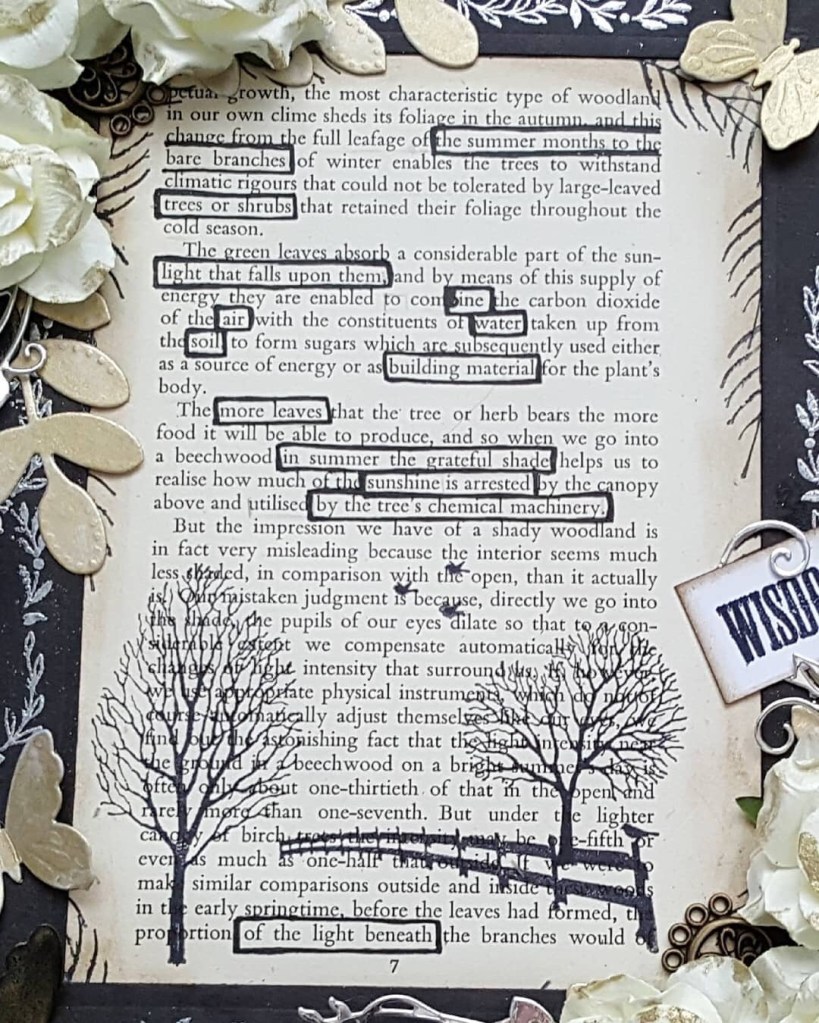 petual growth, the most characteristic type of woodland
in our own clime sheds its foliage in the autumn, and this
change from the full leafage of the summer months to the
bare branches of winter enables the trees to withstand
climatic rigours that could not be tolerated by large-leaved
trees or shrubs that retained their foliage throughout the
cold season.
The green leaves absorb a considerable part of the sun-
light that falls upon them, and by means of this supply of
energy they are enabled to combine the carbon dioxide
of the air with the constituents of water taken up from
the soil to form sugars which are subsequently used either
as a source of energy or as building material for the plant's
body.
The more leaves that the tree or herb bears the more
food it will be able to produce, and so when we go into
a beechwood in summer the grateful shade helps us to
realise how much of the sunshine is arrested by the canopy
above and utilised by the tree's chemical machinery.
But the impression we have of a shady woodland is
in fact very misleading because the interior seems much
less shaded, in comparison with the open, than it actually
is. Our mistaken judgment is because, directly we go into
the shade, the pupils of our eyes dilate so that to a con-
siderable extent we compensate automatically for the
changes of light intensity that surround us. If, however,
we use appropriate physical instruments, which do not of
course automatically adjust themselves like our eyes, we
find out the astonishing fact that the light intensity near
the ground in a beechwood on a bright summer's day is
often only about one-thirtieth of that in the open and
rarely more than one-seventh. But under the lighter
canopy of birch trees the intensity may be one-fifth or
even as much as one-half that outside. If we were to
make similar comparisons outside and inside these woods
in the early springtime, before the leaves had formed, the
proportion of the light beneath the branches would of
7
WISDO